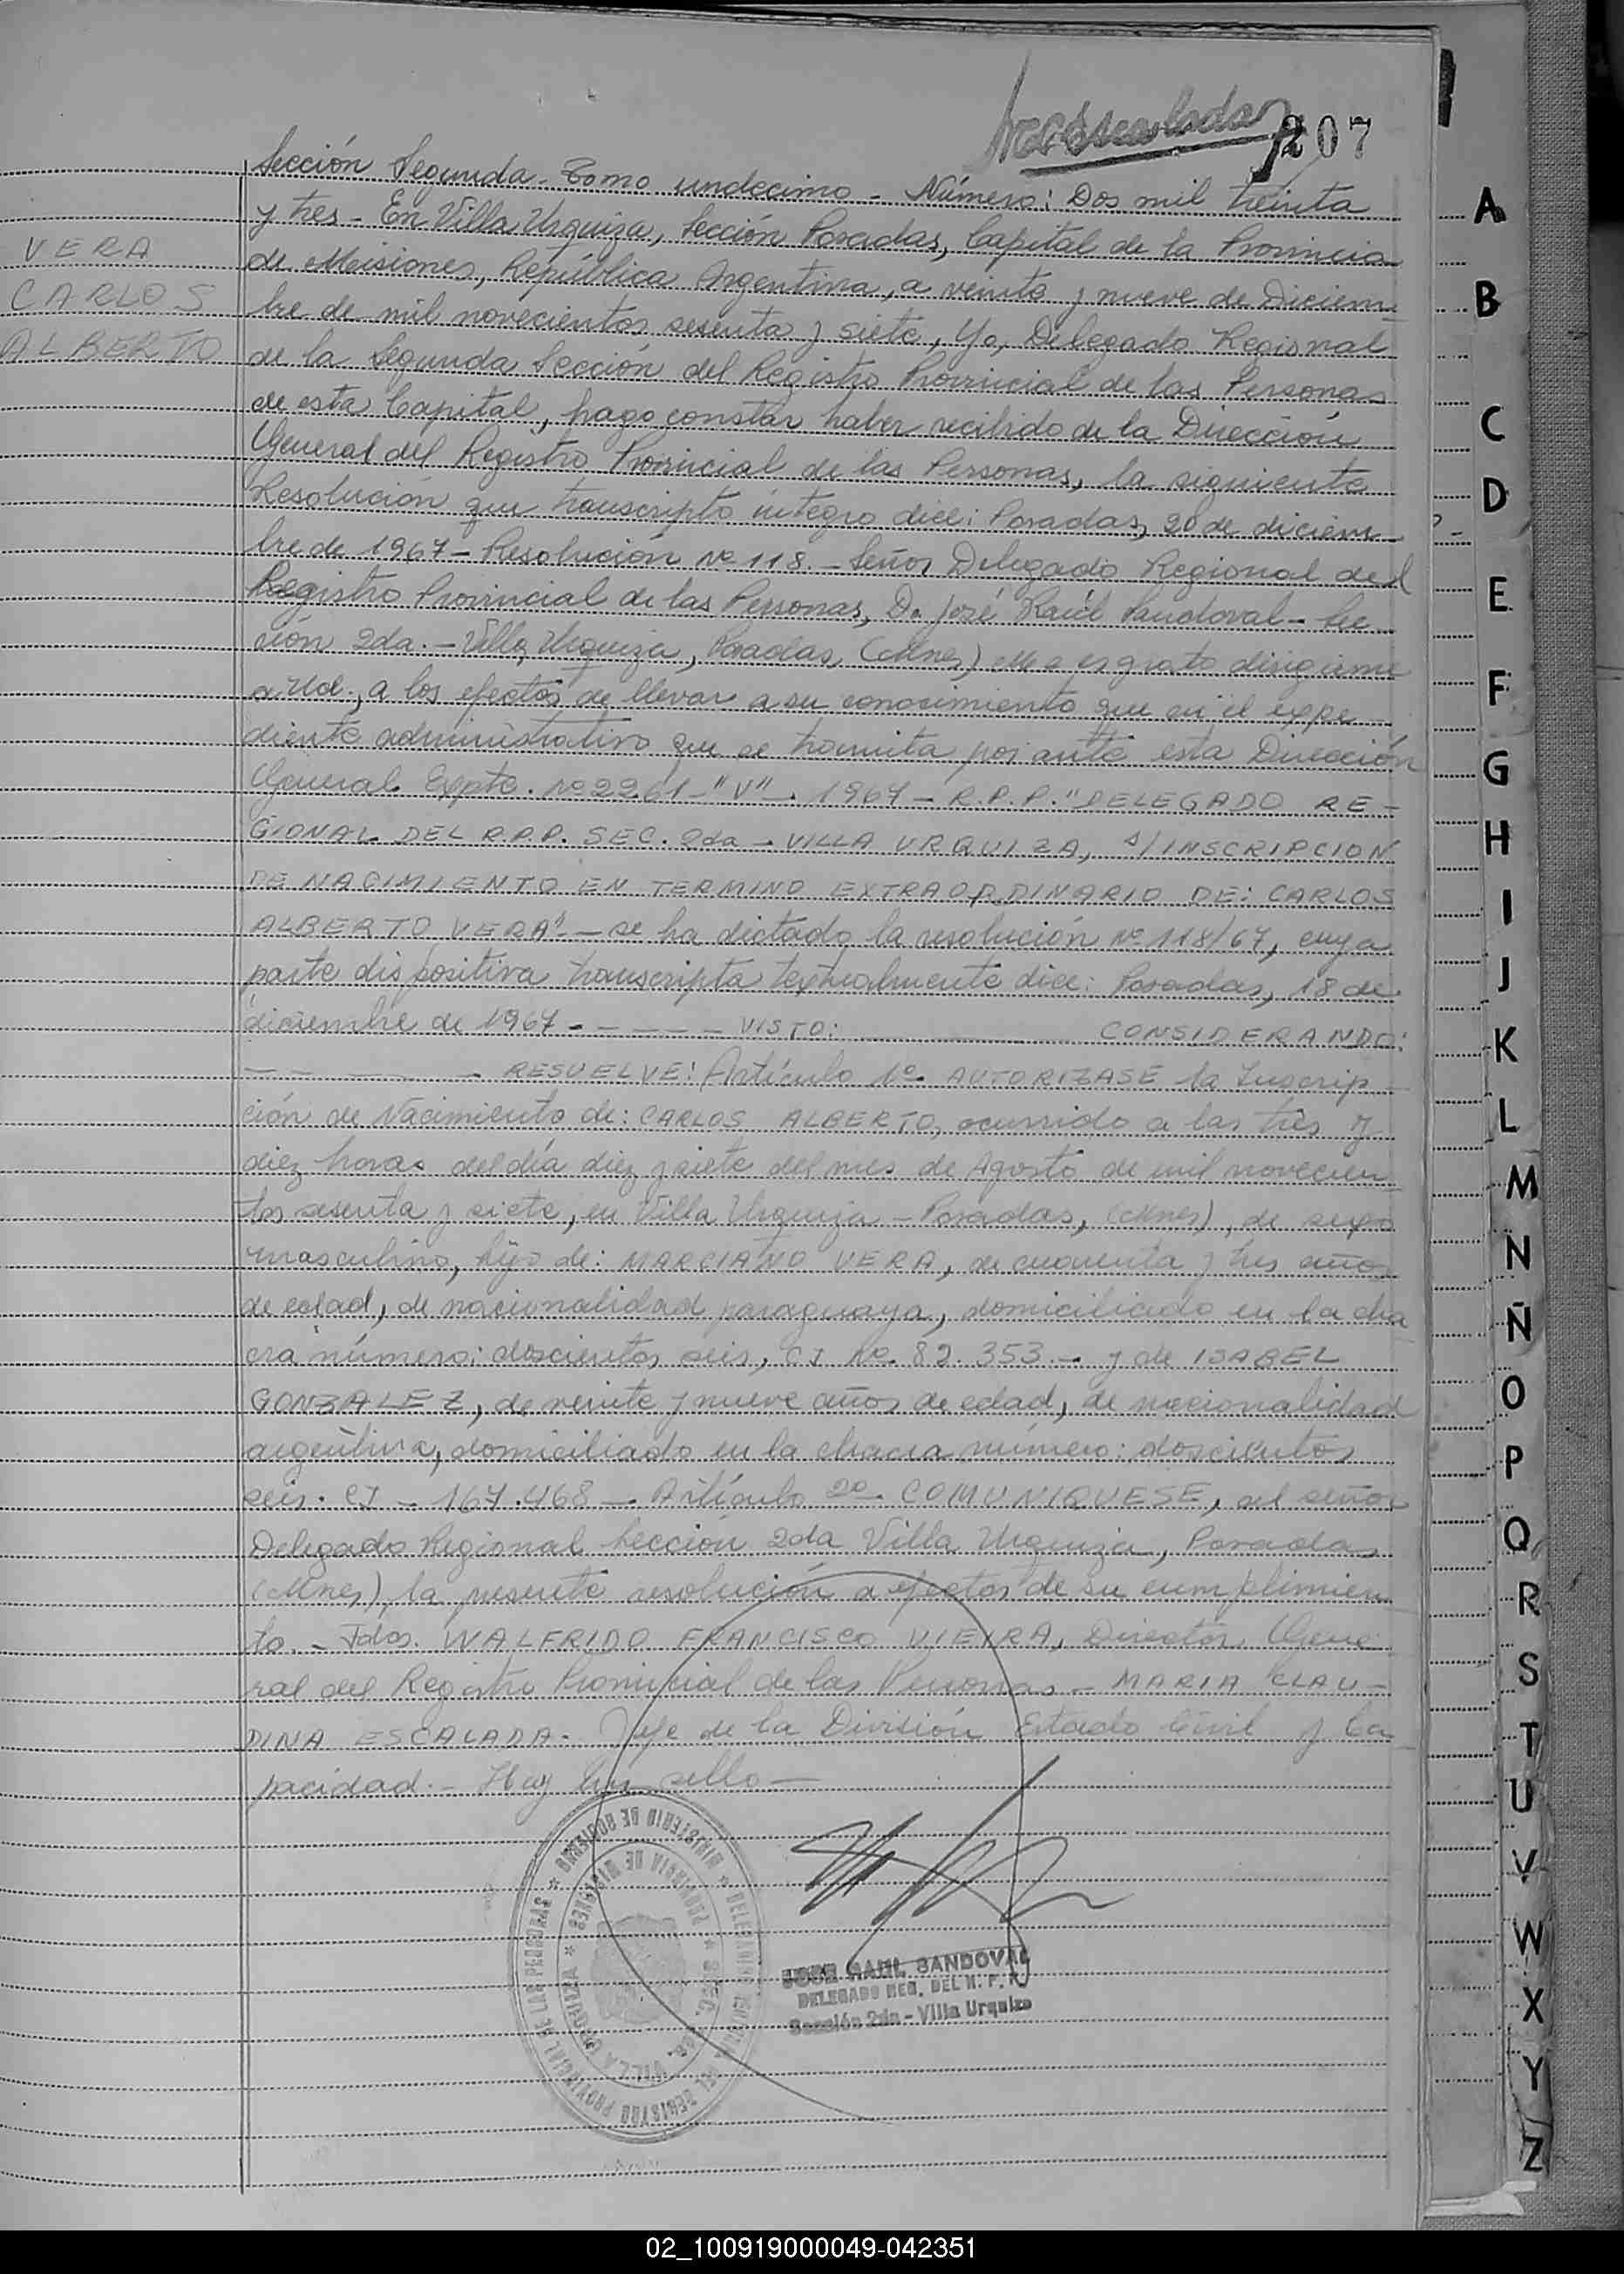 207
Sección Segunda - Tomo undecimo - Número: Dos mil treinta
y tres - En Villa Urquiza, Sección Posadas, Capital de la Provincia
VERA
de Misiones, República Argentina, a veinte y nueve de Diciem-
CARLOS
bre de mil novecientos sesenta y siete, Yo, Delegado Regional
ALBERTO
de la Segunda Sección del Registro Provincial de las Personas
de esta Capital, hago constar haber recibido de la Dirección
General del Registro Provincial de las Personas, la siguiente
Resolución que transcripto integro dice: Posadas, 20 de diciem-
bre de 1967 - Resolución Nº 118. - Señor Delegado Regional del
Registro Provincial de las Personas, D. José Raúl Sandoval - Sec-
ción 2da. - Villa Urquiza, Posadas, (Mnes) Me es grato dirigirme
a Ud., a los efectos de llevar a su conocimiento que en el expe-
diente administrativo que se tramita por ante esta Dirección
General Expte. Nº 2261 - "V" - 1967 - R.P.P. "DELEGADO RE-
GIONAL DEL R.P.P. SEC. 2da - VILLA URQUIZA, s/INSCRIPCION
DE NACIMIENTO EN TERMINO EXTRAORDINARIO DE: CARLOS
ALBERTO VERA" - se ha dictado la resolución Nº 118/67, cuya
parte dispositiva transcripta textualmente dice: Posadas, 18 de
diciembre de 1967 - - - - - VISTO: ——— CONSIDERANDO:
— — — — RESUELVE: Artículo 1º. AUTORIZASE la Inscrip-
ción de Nacimiento de: CARLOS ALBERTO, ocurrido a las tres y
diez horas del día diez y siete del mes de Agosto de mil novecien-
tos sesenta y siete, en Villa Urquiza - Posadas, (Mnes), de sexo
masculino, hijo de: MARCIANO VERA, de cuarenta y tres años
de edad, de nacionalidad paraguaya, domiciliado en la cha-
cra número: doscientos seis, CI Nº. 82.353. - y de ISABEL
GONZALEZ, de veinte y nueve años de edad, de nacionalidad
argentina, domiciliado en la chacra número: doscientos
seis. CI - 167.468 - Artículo 2º - COMUNIQUESE, al señor
Delegado Regional Sección 2da Villa Urquiza, Posadas
(Mnes), la presente resolución a efectos de su cumplimien-
to. - Fdos. WALFRIDO FRANCISCO VIEIRA, Director Gene-
ral del Registro Provincial de las Personas - MARIA CLAU-
DINA ESCALADA - Jefe de la División Estado Civil y Ca-
pacidad. - Hay un sello —
* MINISTERIO DE GOBIERNO * DELEGADO REGIONAL DEL REGISTRO PROVINCIAL DE LAS PERSONAS
PROVINCIA DE MISIONES * SECC. 2da. VILLA URQUIZA *
JOSE RAUL SANDOVAL
DELEGADO REG. DEL R. P. P.
Sección 2da - Villa Urquiza
A
B
C
D
E
F
G
H
I
J
K
L
M
N
Ñ
O
P
Q
R
S
T
U
V
W
X
Y
Z
02_100919000049-042351